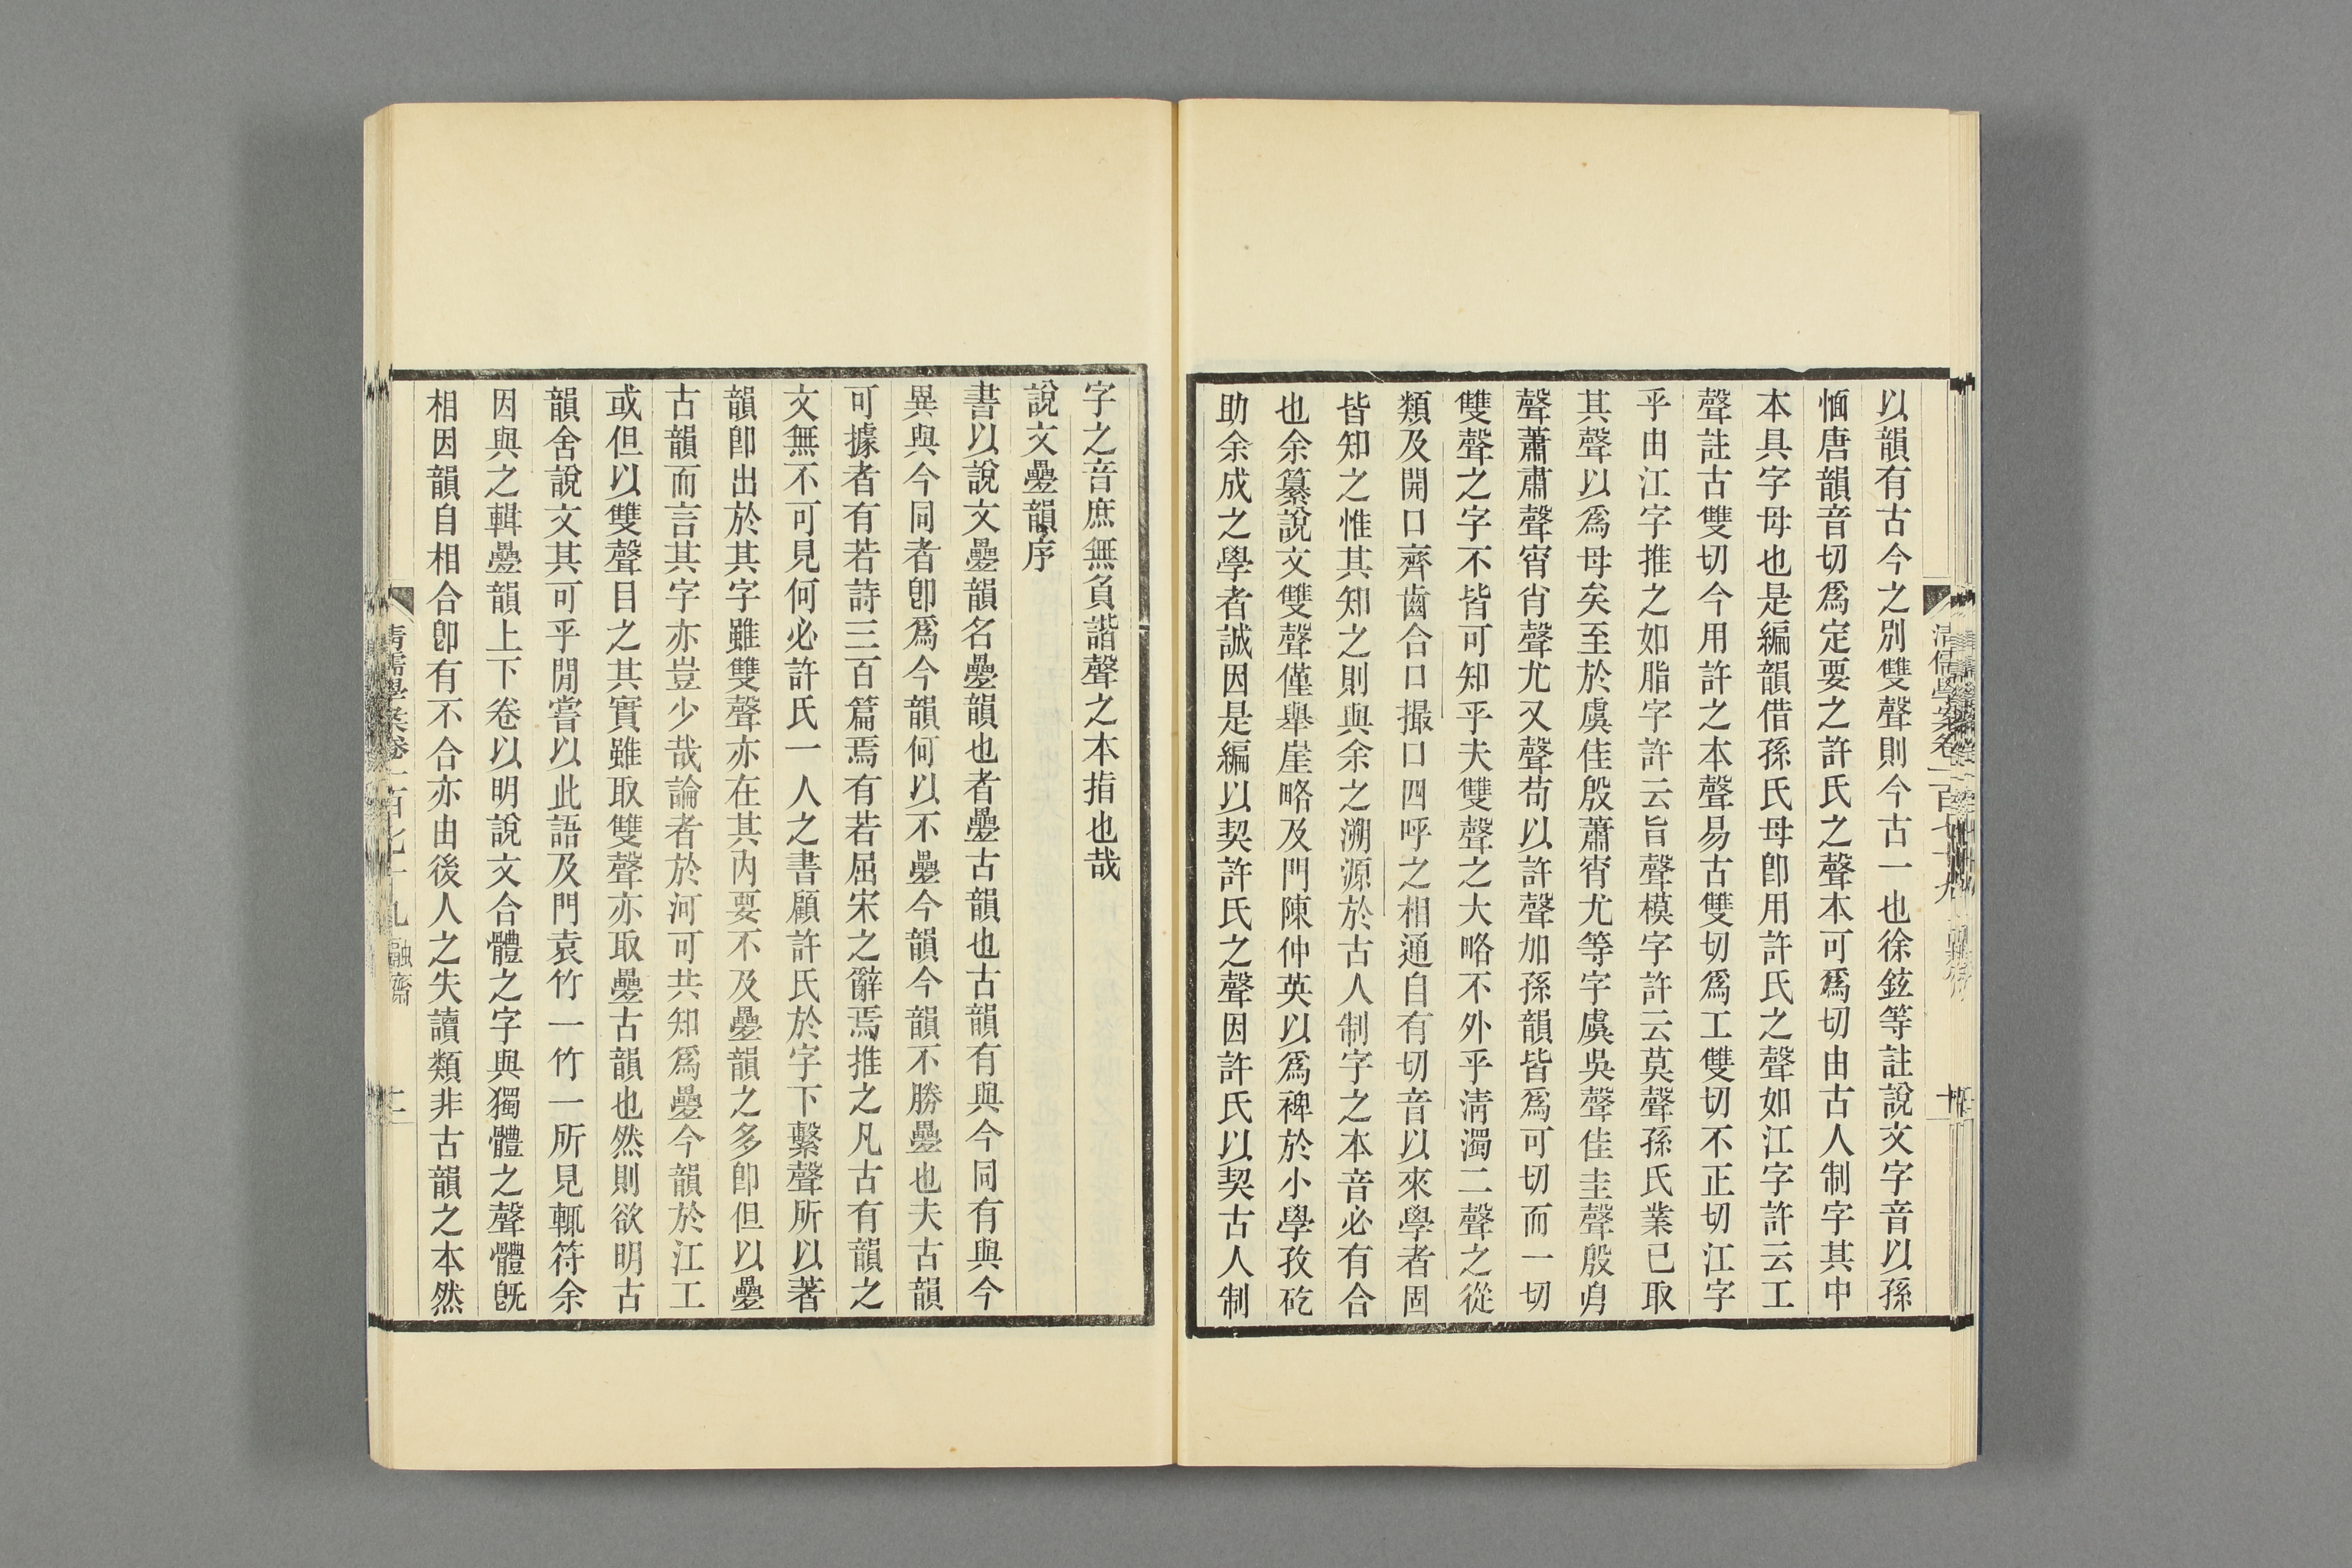 以韻有古今之別雙聲則今古一也徐鉉等註說文字音以孫
愐唐韻音切爲定要之許氏之聲本可爲切由古人制字其中
本具字母也是編韻借孫氏母卽用許氏之聲如江字許云工
聲註古雙切今用許之本聲易古雙切爲工雙切不正切江字
乎由江字推之如脂字許云旨聲模字許云莫聲孫氏業已取
其聲以爲母矣至於虞佳殷蕭宵尤等字虞吳聲佳圭聲殷㐆
聲蕭肅聲宵肖聲尤又聲苟以許聲加孫韻皆爲可切而一切
雙聲之字不皆可知乎夫雙聲之大略不外乎淸濁二聲之從
類及開口齊齒合口撮口四呼之相通自有切音以來學者固
皆知之惟其知之則與余之溯源於古人制字之本音必有合
也余纂說文雙聲僅舉崖略及門陳仲英以爲裨於小學孜矻
助余成之學者誠因是編以契許氏之聲因許氏以契古人制
字之音庶無負諧聲之本指也哉
說文疊韻序
書以說文疊韻名疊韻也者疊古韻也古韻有與今同有與今
異與今同者卽爲今韻何以不疊今韻今韻不勝疊也夫古韻
可據者有若詩三百篇焉有若屈宋之辭焉推之凡古有韻之
文無不可見何必許氏一人之書顧許氏於字下繫聲所以著
韻卽出於其字雖雙聲亦在其內要不及疊韻之多卽但以疊
古韻而言其字亦豈少哉論者於河可共知爲疊今韻於江工
或但以雙聲目之其實雖取雙聲亦取疊古韻也然則欲明古
韻舍說文其可乎閒嘗以此語及門袁竹一竹一所見輒符余
因與之輯疊韻上下卷以明說文合體之字與獨體之聲體旣
相因韻自相合卽有不合亦由後人之失讀類非古韻之本然
清儒學案卷一百七十九 融齋